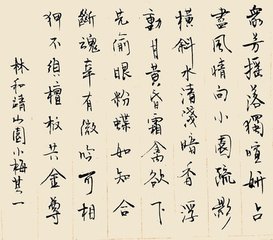 衆芳摇落獨暄妍占
盡風情向小園疏影
橫斜水清淺暗香浮
動月黄昏霜禽欲下
先偷眼粉蝶如知合
斷魂幸有微吟可相
狎不須檀板共金尊
林和靖山園小梅其一